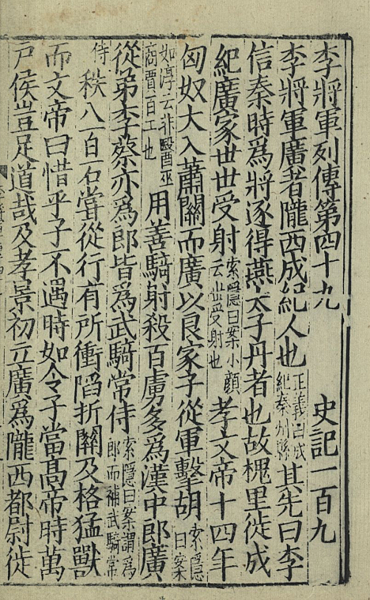 李將軍列傳第四十九 史記一百九
李將軍廣者隴西成紀人也 正義曰成紀秦州縣 其先曰李
信秦時為將逐得燕太子丹者也故槐里徙成
紀廣家世世受射 索隱曰案小顏云世受射也 孝文帝十四年
匈奴大入蕭關而廣以良家子從軍擊胡 索隱曰案
如淳云非醫巫商賈百工也 用善騎射殺百虜多為漢中郎廣
從弟李蔡亦為郎皆為武騎常侍 索隱曰案謂為郎而補武騎常
侍 秩八百石嘗從行有所衝陷折關及格猛獸
而文帝曰惜乎子不遇時如令子當髙帝時萬
戶侯豈足道哉及孝景初立廣為隴西都尉徙